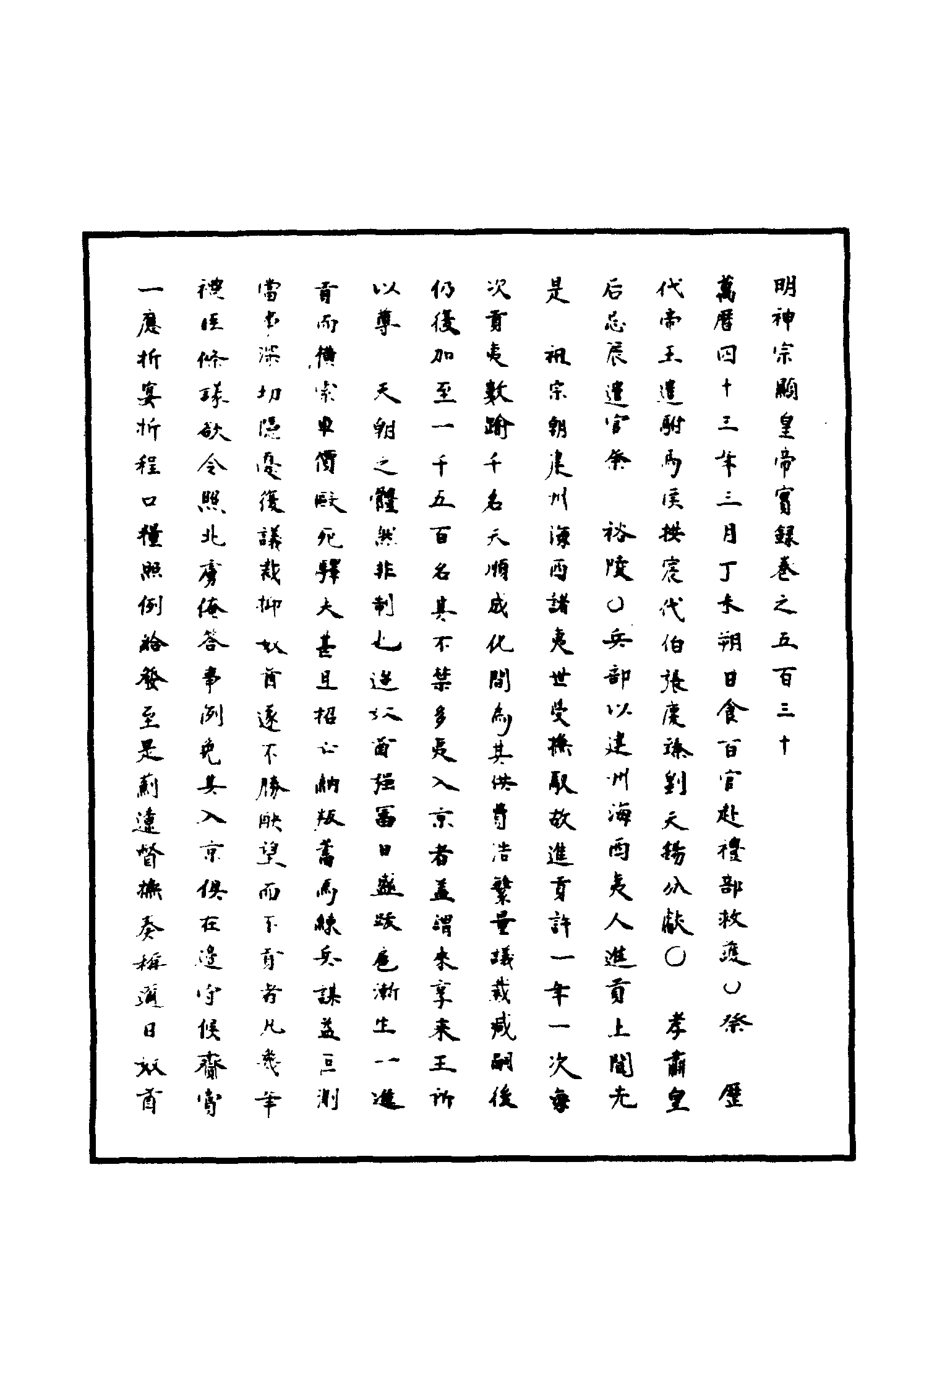 明神宗顯皇帝實錄卷之五百三十
萬曆四十三年三月丁未朔日食百官赴禮部救護○祭　歷
代帝王遣駙馬侯拱宸代伯張慶臻劉天錫分獻○　孝肅皇
后忌辰遣官祭　裕陵○兵部以建州海西夷人進貢上聞先
是　祖宗朝建州海西諸夷世受撫馭故進貢許一年一次每
次貢夷數踰千名天順成化間為其供費浩繁量議裁減嗣後
仍復加至一千五百名其不禁多夷入京者盖謂來享來王所
以尊　天朝之體然非制也邇奴酋强富日盛跋扈漸生一進
貢而橫索車價毆死驛夫甚且招亡納叛蓄馬練兵謀益叵測
當事深切隱憂復議裁抑奴酋遂不勝觖望而不貢者凡幾年
禮臣條議欲令照北虜俺答事例免其入京俱在邊守候齎賞
一應折宴折程口糧照例給發至是薊遼督撫奏稱邇日奴酋